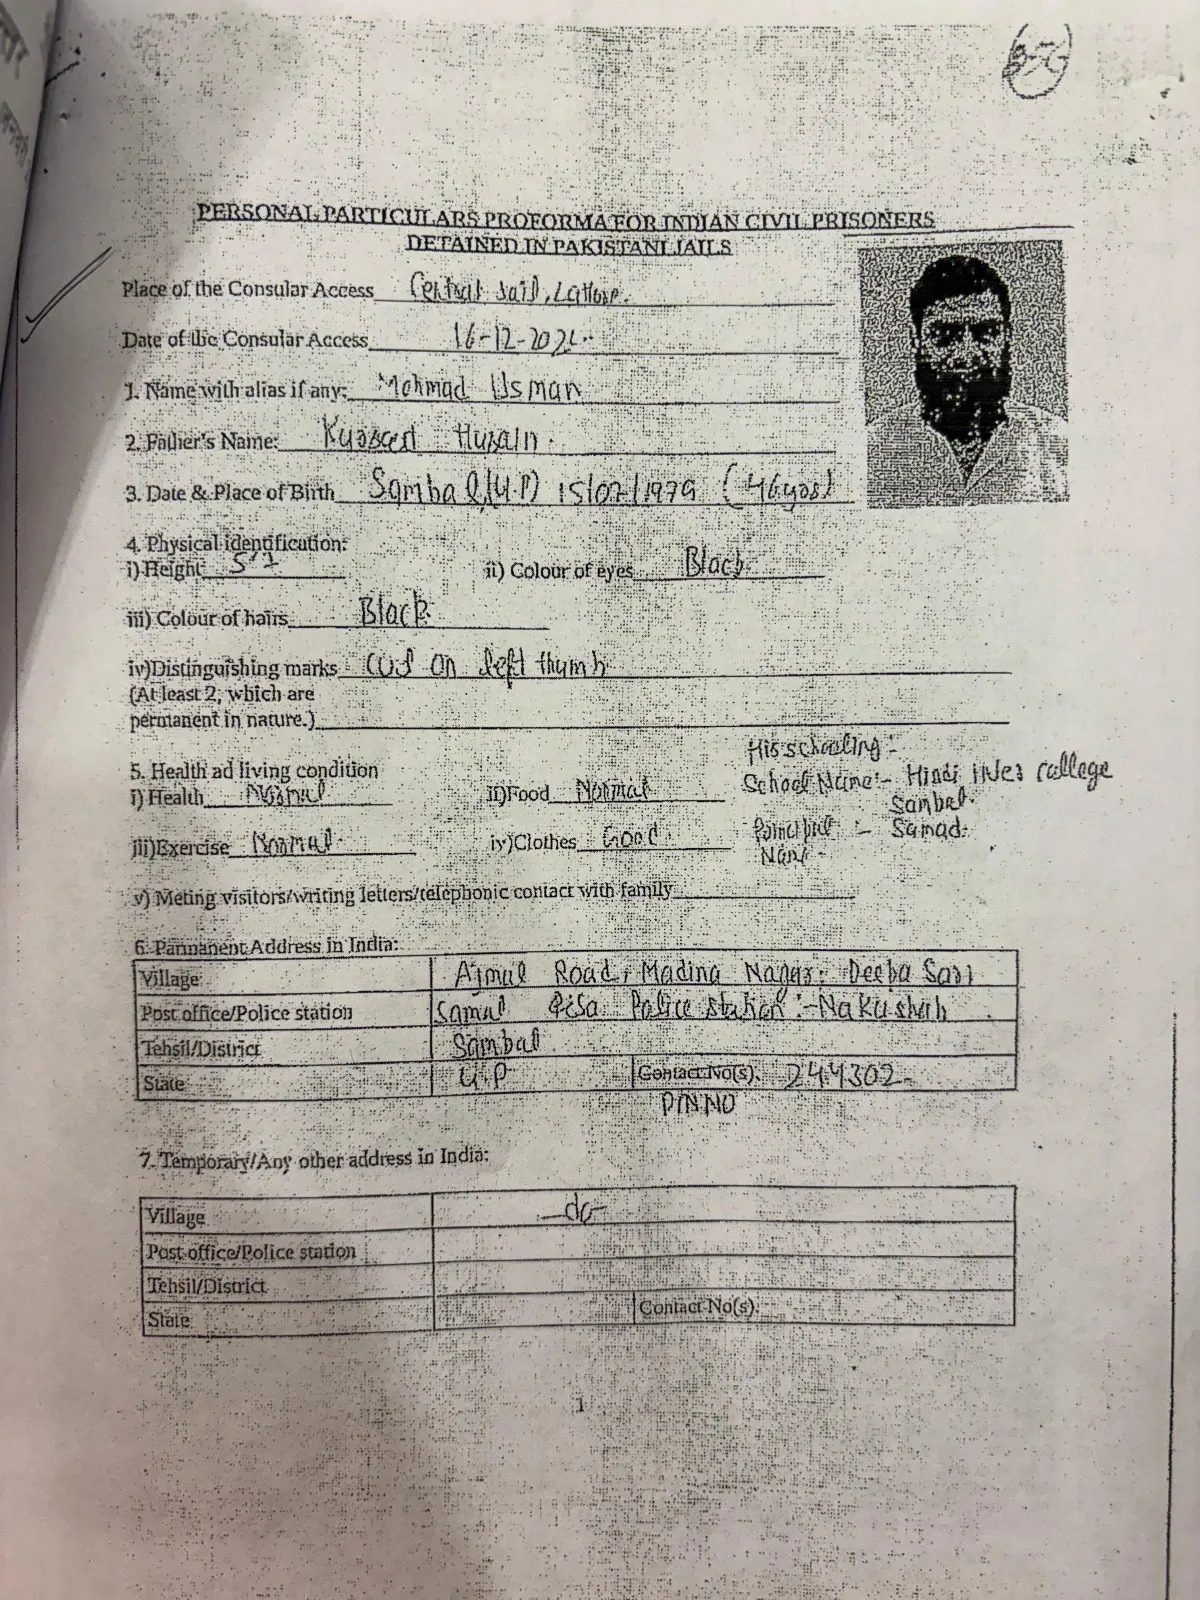 PERSONAL PARTICULARS PROFORMA FOR INDIAN CIVIL PRISONERS
DETAINED IN PAKISTANI JAILS
Place of the Consular Access Central Jail, Lahore.
Date of the Consular Access 16-12-202
1. Name with alias if any: Mohmad Usman
2. Father's Name: Husain.
3. Date & Place of Birth Sambal (U.P) 15/02/1979 (46 yrs)
4. Physical identification:
i) Height 5'
ii) Colour of eyes Black
iii) Colour of hairs Black
iv)Distinguishing marks cut on left thumb
(At least 2, which are
permanent in nature.)
5. Health ad living condition
i) Health Normal ii)Food Normal
iii)Exercise Normal. iv)Clothes Good.
His schooling :-
School Name :- Hindi Inter college
Sambal.
Principal :- Samad.
Name
v) Meting visitors/writing letters/telephonic contact with family
6. Parmanent Address in India:
Village Ajmal Road, Madina Nagar, Deepa Sari
Post office/Police station Police station :- Nakushah
Tehsil/District Sambal
State U.P Contact No(s). 244302
PIN NO
7. Temporary/Any other address in India:
Village -do-
Post office/Police station
Tehsil/District
State Contact No(s).
1